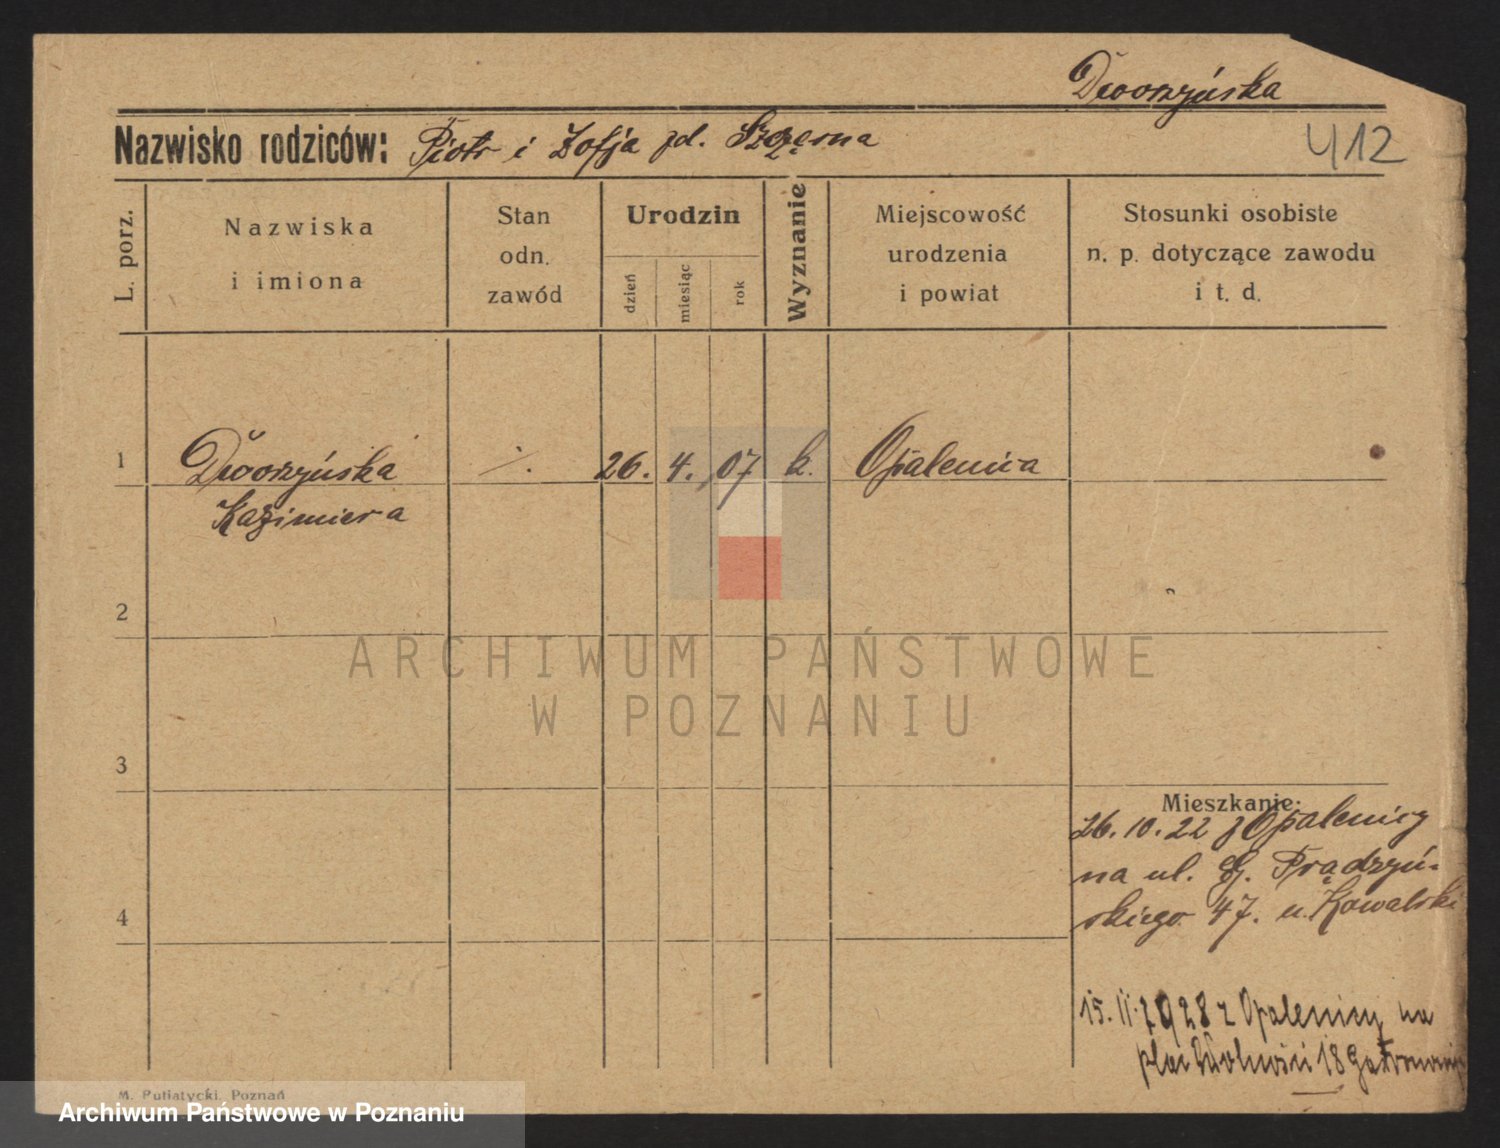 Dworzyńska
Nazwisko rodziców: Piotr i Zofja zd. Szczęsna
412
L. porz.
Nazwiska
i imiona
Stan
odn.
zawód
Urodzin
dzień
miesiąc
rok
Wyznanie
Miejscowość
urodzenia
i powiat
Stosunki osobiste
n. p. dotyczące zawodu
i t. d.
1 Dworzyńska ·/. 26. 4. 07 k. Opalenica
Kazimiera
2
ARCHIWUM PAŃSTWOWE
W POZNANIU
3
Mieszkanie:
26.10.22 z Opalenicy
na ul. Prądzyń-
4
skiego 47. u. Kowalski
15. 11. 1928 z Opalenicy na
plac Wolności 18
M. Putiatycki, Poznań
Archiwum Państwowe w Poznaniu